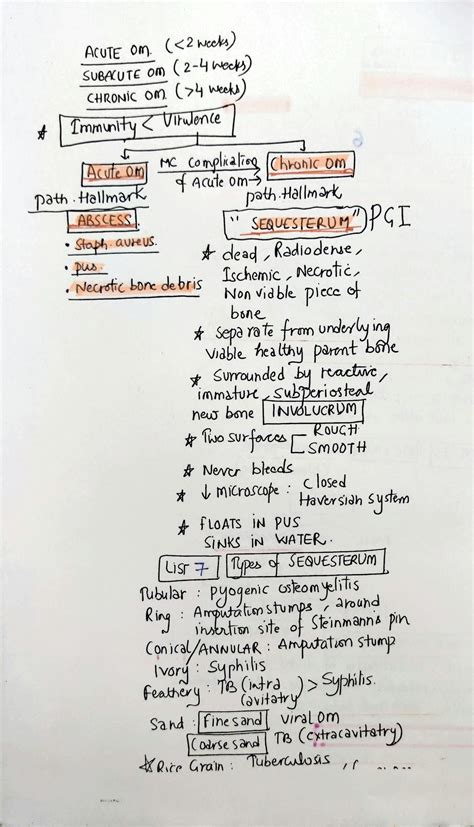 ACUTE OM. (<2 weeks)
SUBACUTE OM (2-4 weeks)
CHRONIC OM. (>4 weeks)
★ Immunity < Virulence
Acute OM MC Complication of Acute OM → Chronic OM
path. Hallmark path. Hallmark
ABSCESS "SEQUESTERUM" PGI
• Staph. aureus.
• pus.
• Necrotic bone debris
★ dead, Radiodense,
Ischemic, Necrotic,
Non viable piece of
bone
★ Separate from underlying
viable healthy parent bone
★ Surrounded by reactive,
immature, subperiosteal,
new bone INVOLUCRUM
★ Two surfaces ROUGH
SMOOTH
★ Never bleeds
★ ↓ microscope : closed
Haversian system
★ FLOATS IN PUS
SINKS IN WATER.
LIST 7 Types of SEQUESTERUM
Tubular : pyogenic osteomyelitis
Ring : Amputation stumps, around
insertion site of Steinmann's pin
Conical/ANNULAR : Amputation stump
Ivory : Syphilis
Feathery : TB (intra cavitatry) > Syphilis.
Sand : Fine sand viral OM
Coarse sand TB (extracavitatry)
★ Rice Grain : Tuberculosis